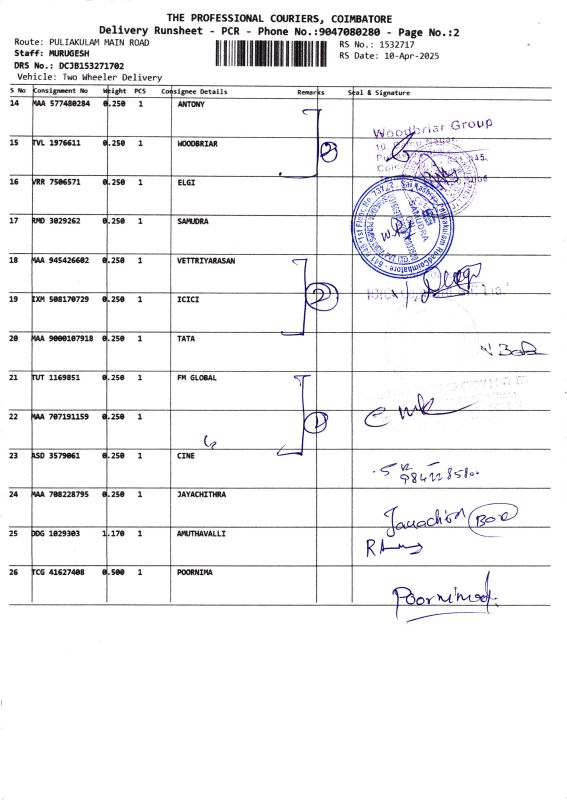 THE PROFESSIONAL COURIERS, COIMBATORE
Delivery Runsheet - PCR - Phone No.:9047080280 - Page No.:2
Route: PULIAKULAM MAIN ROAD
RS No.: 1532717
Staff: MURUGESH
RS Date: 10-Apr-2025
DRS No.: DCJB153271702
Vehicle: Two Wheeler Delivery
S No Consignment No Weight PCS Consignee Details Remarks Seal & Signature
14 MAA 577480284 0.250 1 ANTONY
Woodbriar Group
15 TVL 1976611 0.250 1 WOODBRIAR
2
16 VRR 7506571 0.250 1 ELGI
17 RMD 3029262 0.250 1 SAMUDRA
SAMUDRA
18 MAA 945426602 0.250 1 VETTRIYARASAN
19 IXM 508170729 0.250 1 ICICI
2
20 MAA 9000107918 0.250 1 TATA
21 TUT 1169851 0.250 1 FM GLOBAL
22 MAA 707191159 0.250 1
1
23 ASD 3579061 0.250 1 CINE
24 MAA 708228795 0.250 1 JAYACHITHRA
25 DDG 1029303 1.170 1 AMUTHAVALLI
26 TCG 41627408 0.500 1 POORNIMA